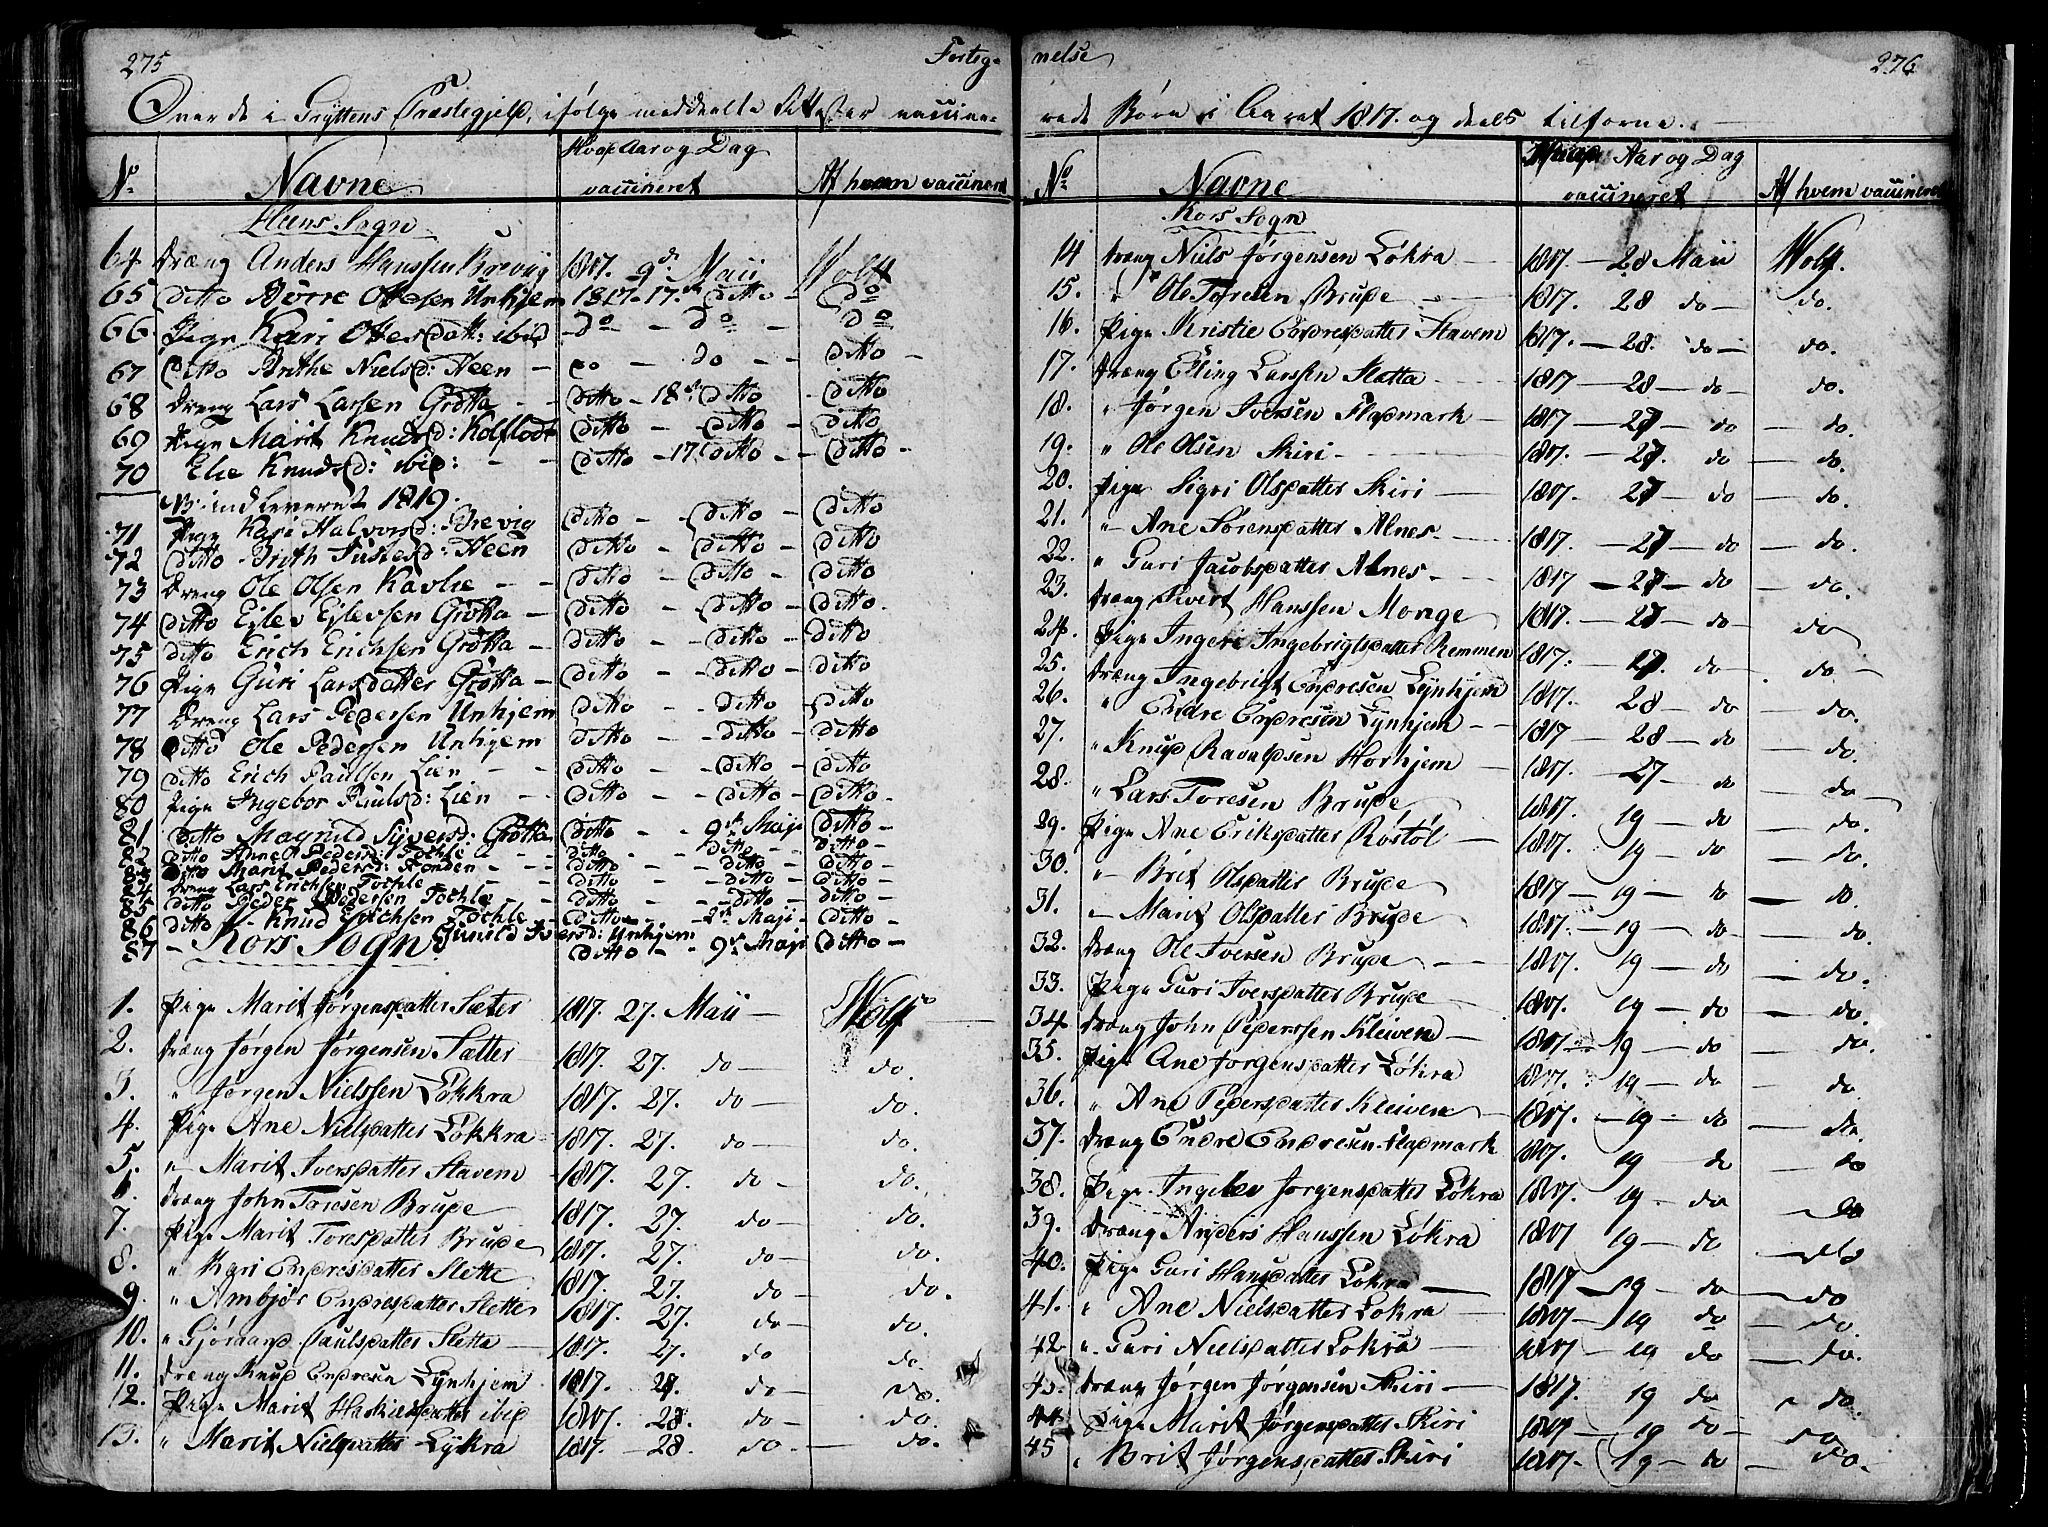 275
Forteg-
Over de i Gryttens Præstegjeld, ifølge meddeelte Attester vaccine-
No
Navne
Hvad Aar og Dag vaccineret
Af hvem vaccineret
Heens Sogn
64 Dræng Anders Hanssen Brevig 1817. 9de Maii Wolff
65 Ditto Børre Ottesen Unhjem 1817. 17de Ditto - Do
66. Pige Kari Ottersdatt: ibid - Do - Do - Do
67 Ditto Brithe Nielsd: Heen - Do - do - - Ditto -
68 Dreng Lars Larsen Grötta - - Ditto - 18de Ditto - Ditto
69 Pige Marit Knudsd: Kolflodt Ditto - Ditto - Ditto
70 Else Knudsd: ibid: - - Ditto - 17 Ditto - Ditto -
NB: indleveret 1819.
71 Pige Kari Halvorsd: Brevig Ditto - Ditto - Ditto
72 Ditto Brith Justesd: Heen Ditto - Ditto - Ditto
73 Dreng Ole Olsen Kavlie - - Ditto - Ditto - Ditto
74 Ditto Ejlev Ejlevsen Grötta - Ditto - - Ditto - Ditto.
75 Ditto Erich Erichsen Grötta - Ditto - - Ditto - Ditto
76 Pige Guri Larsdatter Grötta - Ditto - - Ditto - Ditto
77 Dreng Lars Pedersen Unhjem Ditto - - Ditto - Ditto
78 Ditto Ole Pedersen Unhjem Ditto - - Ditto - Ditto
79 Ditto Erich Paulsen Lien - - Ditto - - Ditto - Ditto
80 Pige Ingebor Paulsd: Lien - - Ditto - - Ditto - Ditto -
81 Ditto Magnild Syversd: Grötta Ditto - - 9de Maji Ditto -
82 Ditto Anne Pedersd: Fochle - - Ditto - - Ditto - Ditto -
83 Ditto Marit Pedersd: Honden - - Ditto - - Ditto - Ditto -
84 Dreng Lars Erichsen Fochle - - Ditto - - Ditto - Ditto -
85 Ditto Peder Pedersen Fochle - - Ditto - - Ditto - Ditto -
86 Ditto Knud Erichsen Fochle - Ditto - - 2de Maji - Ditto -
87 - Gunild Iversd: Unhjem Ditto - - 9de Maji Ditto -
Kors Sogn
1. Pige Marit Jørgensdatter Sæter 1817. 27. Maii - Wolff
2. Dræng Jørgen Jørgensen Sætter - 1817. 27. do - do.
3. " Jørgen Nielssen Løkkra 1817. 27. do - do.
4. Pige Ane Nielsdatter Løkkra - 1817. 27. do - do.
5. " Marit Iversdatter Stavem 1817. 27. do - do.
6. Dræng John Toresen Brude 1817. 27. do - do.
7. Pige Marit Toresdatter Brude 1817. 27. do - do.
8. " Kari Endresdatter Slette 1817. 27. do do.
9. " Ambjør Endresdatter Slette 1817. 27. do - do.
10. " Gjøraand Paulsdatter Sletta - 1817. 27. do do.
11. Dræng Knud Endresen Lynhjem 1817. 27. do - do.
12. Pige Marit Haskielsdatter ibid 1817. 28. do - do.
13. " Marit Nielsdatter Lykra 1817. - 28. do. - do.
276
nelse
rede Børn i Aaret 1817. og deels tilforne.
No
Navne
Aar og Dag vaccineret
Af hvem vaccineret
Kors Sogn
14 Dræng Niels Jørgensen Løkra - 1817. - 28 Maii Wolf.
15. " Ole Toresen Brude - 1817. 28 do - do.
16. Pige Kristie Endresdatter Stavem 1817. - 28. do - do.
17. Dræng Elling Larssen Sletta - 1817 - 28 - do - do.
18. " Jørgen Iversen Fladmark - 1817 - 27 - do - do.
19. " Ole Olsen Skiri - 1817. - 27. do - do.
20. Pige Sigri Olsdatter Skiri - 1817. - 27 - do - do.
21. " Ane Sørensdatter Alnes - 1817. - 27 - do - do.
22. " Guri Jacobsdatter Alnes - 1817 - 27 - do - do.
23. Dræng Sivert Hanssen Monge 1817. - 27 - do - do
24. Pige Ingeri Ingebrigtsdatter Remmen 1817. - 27. do - do -
25. Dræng Ingebrigt Endresen Lynhjem 1817. - 28 - do - do.
26. " Endre Endresen Lynhjem - 1817 - 28 - do - do.
27. " Knud Ravaldsen Horhjem - 1817. - 27 - do - do -
28. " Lars Toresen Brude 1817. 19 - do - do.
29. Pige Ane Eriksdatter Røstøl 1817. 19 - do - do.
30. " Brit Olsdatter Brude 1817 - 19 - do - do.
31. " Marit Olsdatter Brude 1817. - 19 - do - do.
32. Dræng Ole Iversen Brude - 1817. 19 - do - do.
33. Pige Guri Iversdatter Brude - 1817. 19 - do - do.
34 Dræng John Pederssen Kleiven - 1817 - 19 - do - do.
35. Pige Ane Jørgensdatter Løkra 1817. 19 - do - do
36. " Ane Pedersdatter Kleiven - 1817. - 19 - do - do.
37. Dræng Endre Endresen Fladmark 1817. 19 - do - do
38. Pige Ingebor Jørgensdatter Løkra 1817. 19 - do - do
39. Dræng Anders Hanssen Løkra 1817 19 - do - do
40. Pige Guri Hansdatter Løkra - 1817 - 19 - do - do
41. " Ane Nielsdatter Løkra - 1817 - 19 do - do.
42 " Guri Nielsdatter Løkra - 1817 - 19 do - do.
43. Dræng Jørgen Jørgensen Skiri - 1817. 19 do - do.
44 Pige Marit Jørgensdatter Skiri 1817 - 19 do - do
45 " Brit Jørgensdatter Skiri 1817. - 19 - do - do.